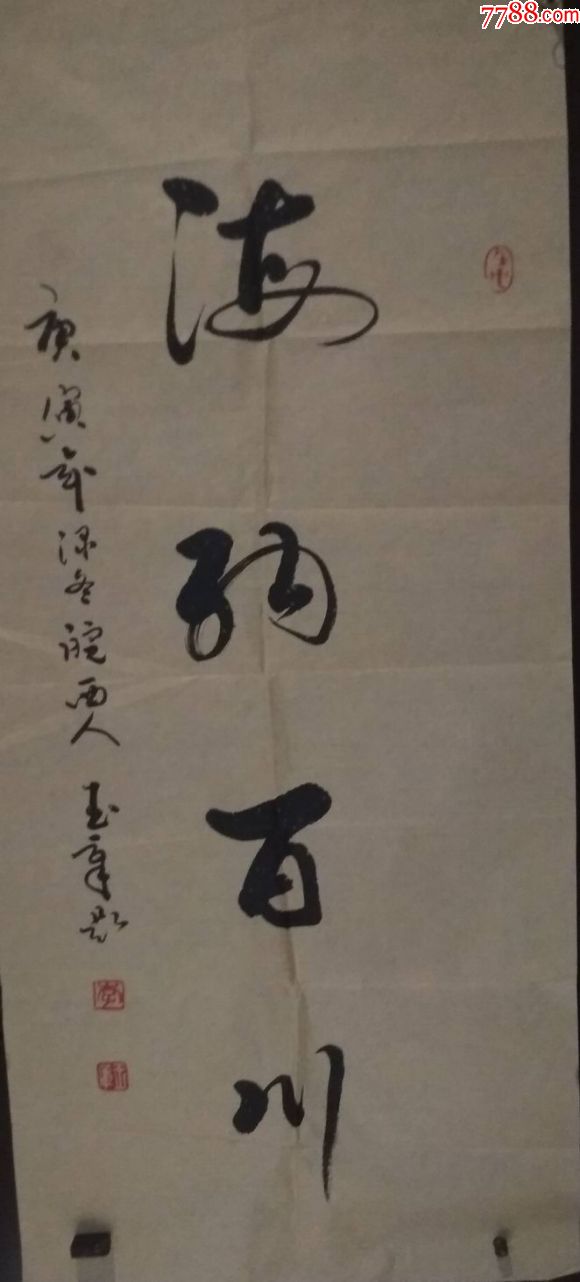 7788.com
海纳百川
庚寅年深冬皖西人玉章题